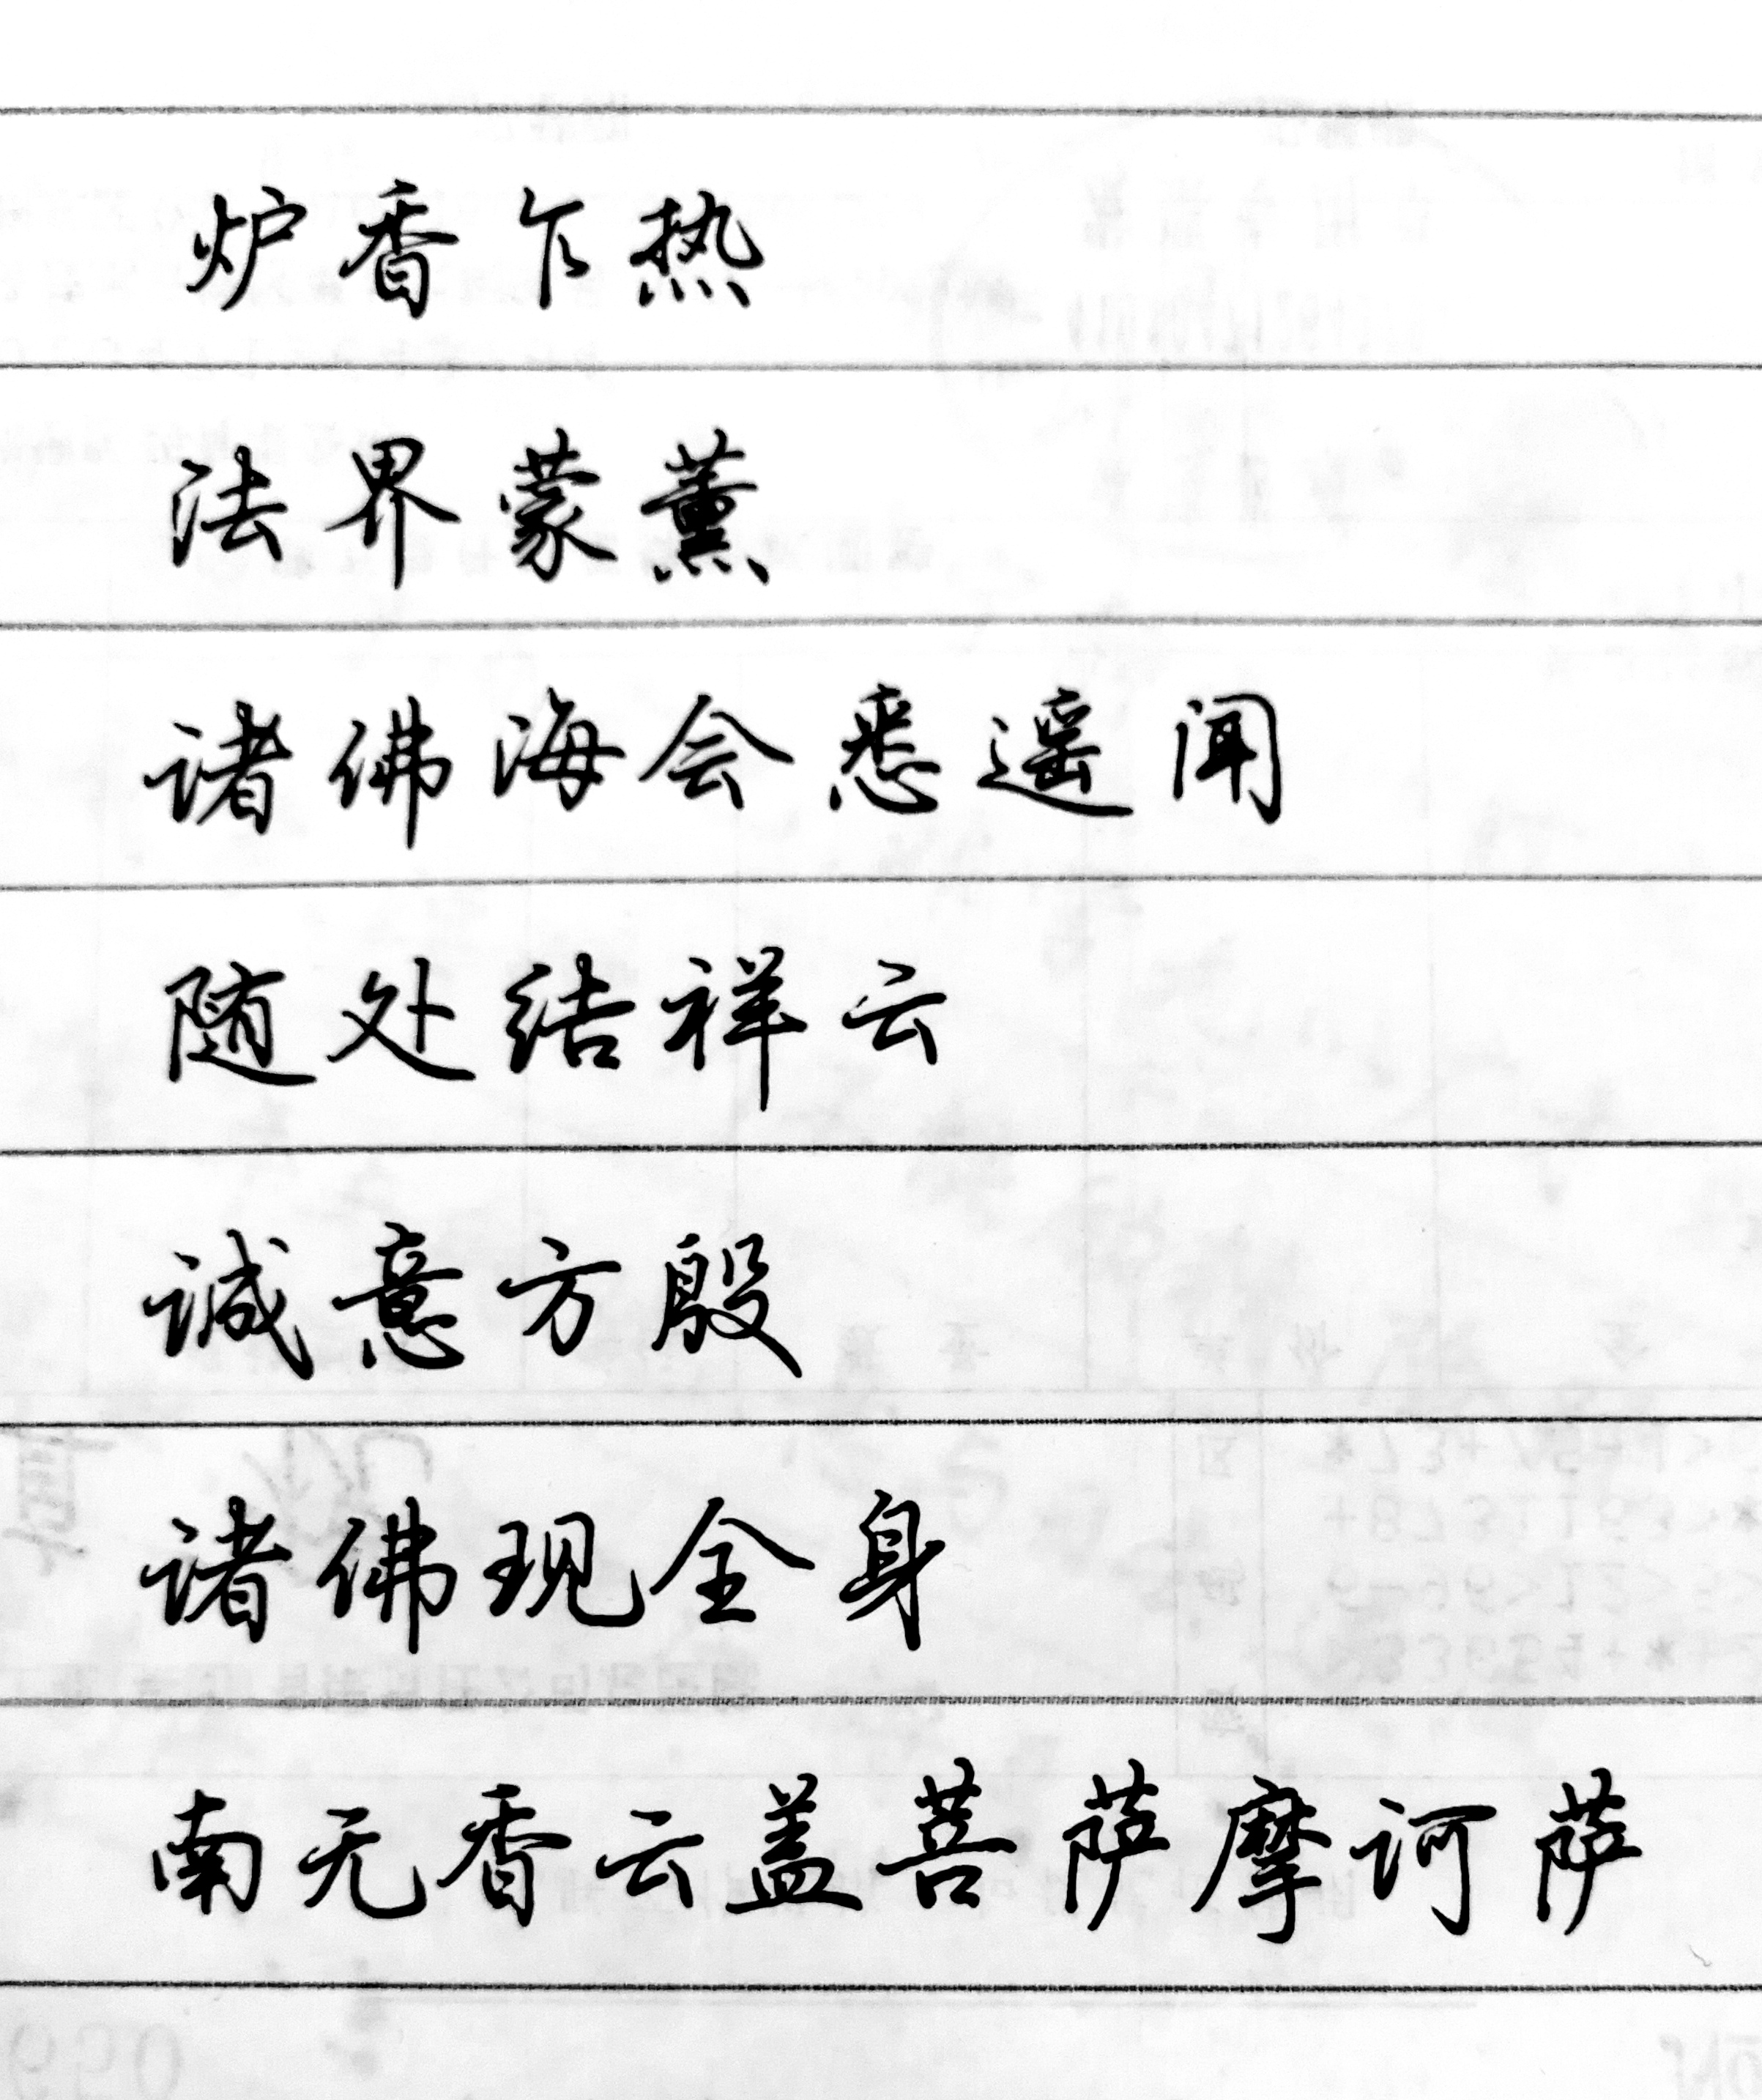 炉香乍热
法界蒙薰
诸佛海会悉遥闻
随处结祥云
诚意方殷
诸佛现全身
南无香云盖菩萨摩诃萨